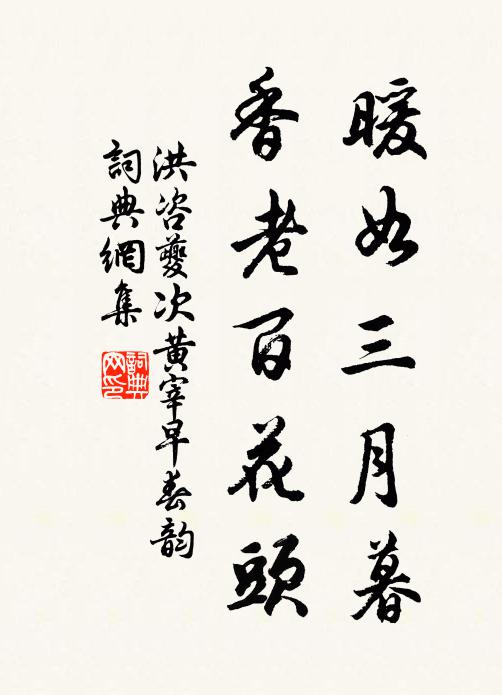 暖如三月暮
香老百花頭
洪咨夔次黄宰早春韵
詞典網集
詞典網印